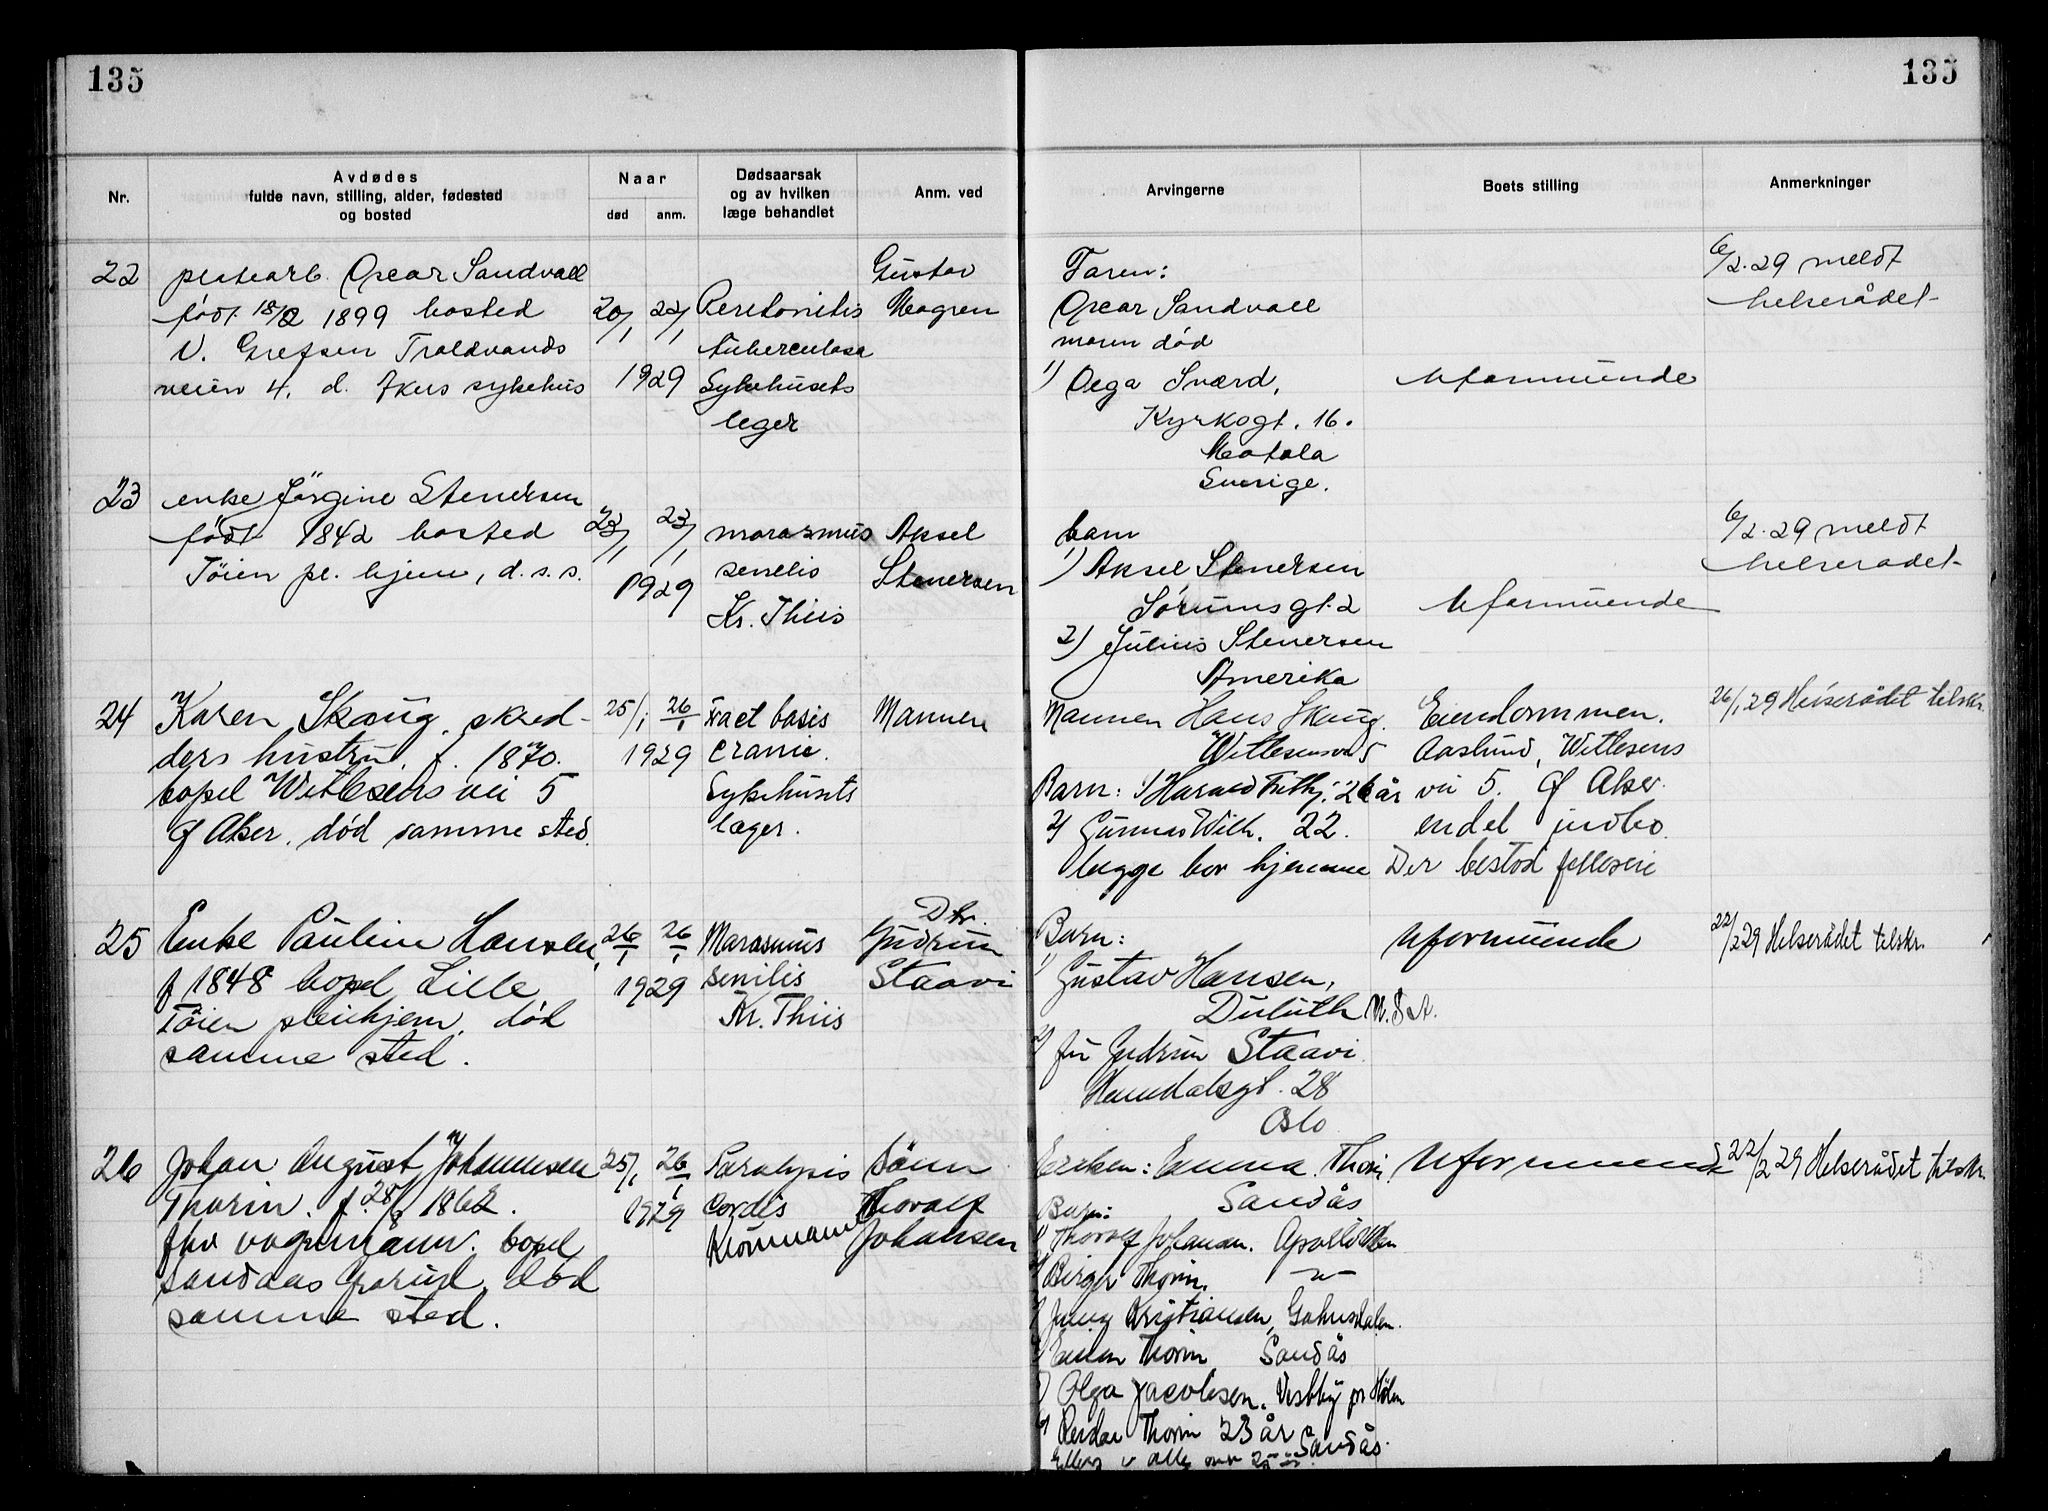 135
135
Nr.
Avdødes
fulde navn, stilling, alder, fødested
og bosted
Naar
død
anm.
Dødsaarsak
og av hvilken
læge behandlet
Anm. ved
Arvingerne
Boets stilling
Anmerkninger
22
Oscar Sandvall
født 18/2 1899 bosted
V. Grefsen Traldvands
veien 4. d. Akers sykehus
20/1 22/1
1929
Peretonitis
tuberculosa
Sykehusets
leger
Gustav
Mogren
Faren:
Oscar Sandvall
moren død
1) Olga Sværd,
Kyrkogt. 16.
Motala
Sverige.
Uformuende
6/2.29 meldt
helserådet
23
enke Jörgine Stenersen
født 1842 bosted
Töien pl. hjem, d. s. s.
23/1 23/1
1929
marasmus
senelis
Kr. Thiis
Aksel
Stenersen
barn
1) Aksel Stenersen
Sørumsgt. 2
2) Julius Stenersen
Amerika
Uformuende
6/2.29 meldt
helserådet
24
Karen Skaug, skred-
ders hustru, f. 1870.
bopel Wittlesens vei 5
Ø Aker. død samme sted.
25/1 26/1
1929
Fract basis
cranie.
Sykehusets
læger.
Mannen
Mannen Hans Skaug.
Wittlesensv 5
Barn: 1) Harald Frithj. 26 år
2) Gunnar Wilh. 22.
begge bor hjemme
Eiendommen.
Aaslund, Wittlesens
vei 5. Ø Aker.
endel indbo.
Der bestod felleseie
26/1 29 Helserådet tilskr.
25
Enke Pauline Hansen,
f 1848 bopel Lille
Töien pleiehjem. død
samme sted.
26/1 26/1
1929
Marasmus
senilis
Kr. Thiis
Dtr.
Gudrun
Staavi
Barn:
1) Gustav Hansen,
Duluth U.S.A.
2) fru Gudrun Staavi
Heimdalsgt. 28
Oslo
Uformuende
22/2 29 Helserådet tilskr.
26
Johan August Johannesen
Thorin. f. 28/8 1862.
fhv vognmann. bopel
Sandaas Grorud. død
samme sted.
25/1 26/1
1929
Paralysis
cordis
Sönn
Thoralf
Johansen
Enken: Emma Thorin,
Sandås
Barn:
1) Thoralf Johansen.
2) Birger Thorin.
3) Jenny Kristiansen,
4) Thorin Sandås
5) Olga Jacobsen. Vestby pr Hölen
6) Reidar Thorin 23 år Sandås.
Uformuende
22/2 29 Helserådet tilskr.